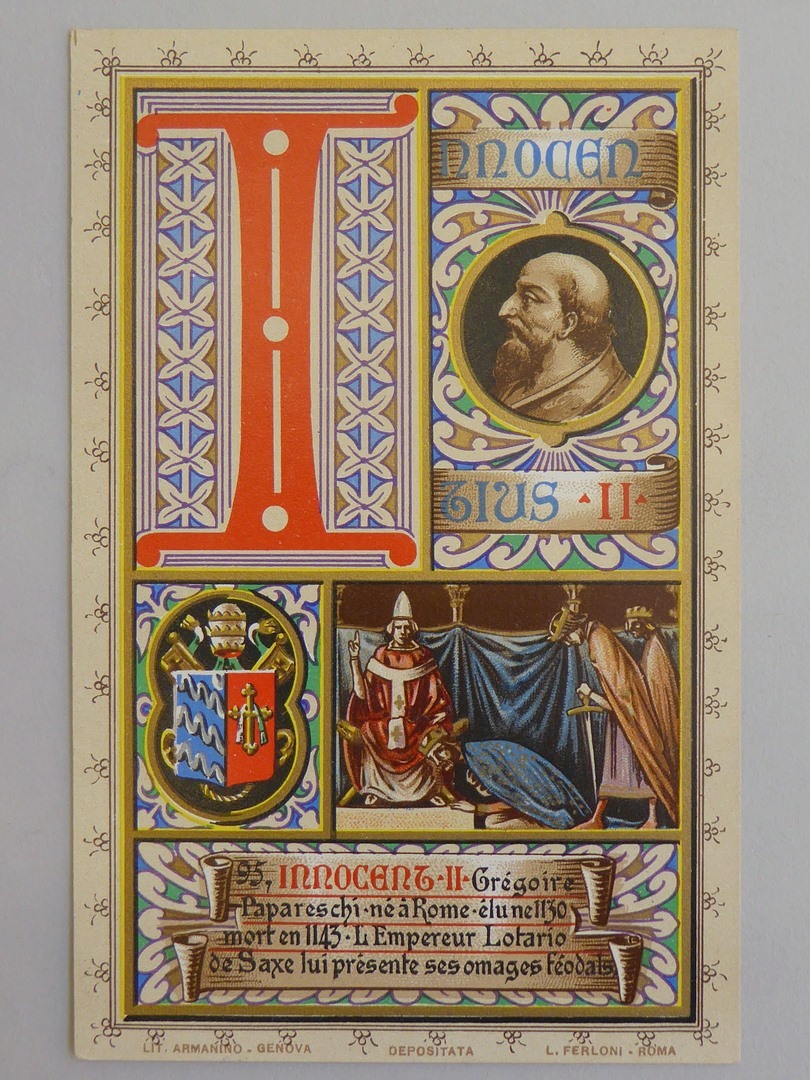 INNOCEN
TIUS · II ·
95, INNOCENT · II · Grégoire
Papareschi · né à Rome · élu ne 1130
mort en 1143 · L Empereur Lotario
de Saxe lui présente ses omages féodals
LIT. ARMANINO - GENOVA DEPOSITATA L. FERLONI - ROMA